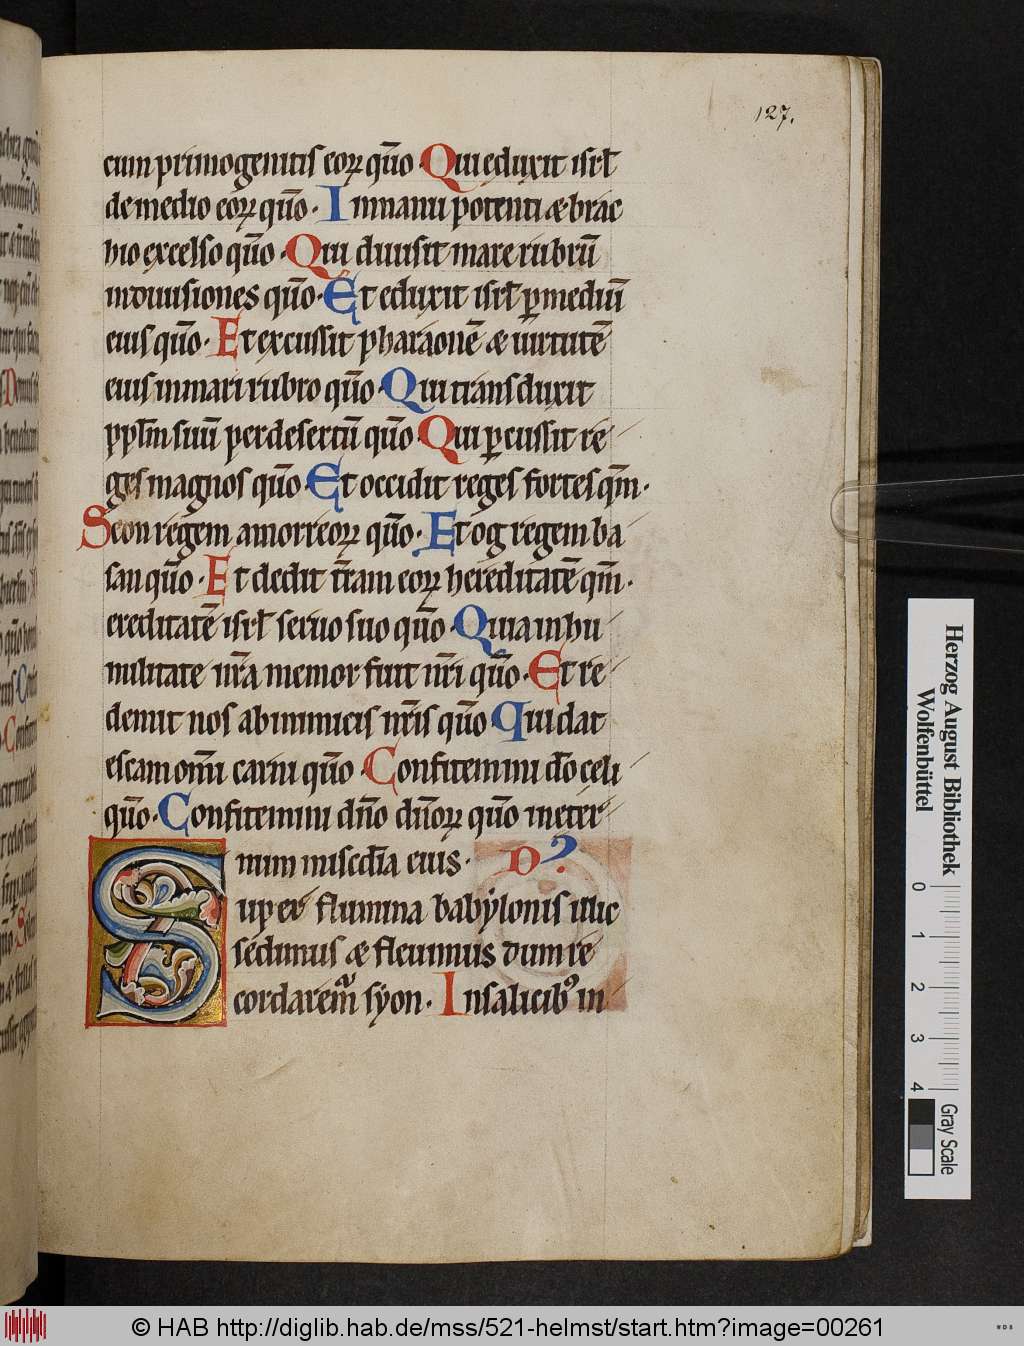 127.
cum primogenitis eoꝝ qm̄o · Qui eduxit isrł
de medio eoꝝ qm̄o · In manu potenti æ brac
hio excelso qm̄o · Qui diuisit mare rubrū
in diuisiones qm̄o · Et eduxit isrł ꝑ mediū
eius qm̄o · Et excussit pharaonē æ uirtutē
eius in mari rubro qm̄o · Qui transduxit
ppl̄m suū per desertū qm̄o · Qui ꝑcussit re
ges magnos qm̄o · Et occidit reges fortes qm̄ ·
Seon regem amorreoꝝ qm̄o · Et og regem ba
san qm̄o · Et dedit t̄ram eoꝝ hereditatē qm̄ ·
ereditatē isrł seruo suo qm̄o · Quia in hu
militate nr̄a memor fuit nr̄i qm̄o · Et re
demit nos ab inimicis nr̄is qm̄o · Qui dat
escam om̄i carni qm̄o · Confitemini dō celi
qm̄o · Confitemini dn̄o dn̄oꝝ qm̄o in eter
num misc̄dia eius ·
Super flumina babylonis illic
sedimus æ fleuimus dum re
cordaremur syon · In salicibꝰ in
Herzog August Bibliothek
Wolfenbüttel
0 1 2 3 4
Gray Scale
© HAB http://diglib.hab.de/mss/521-helmst/start.htm?image=00261